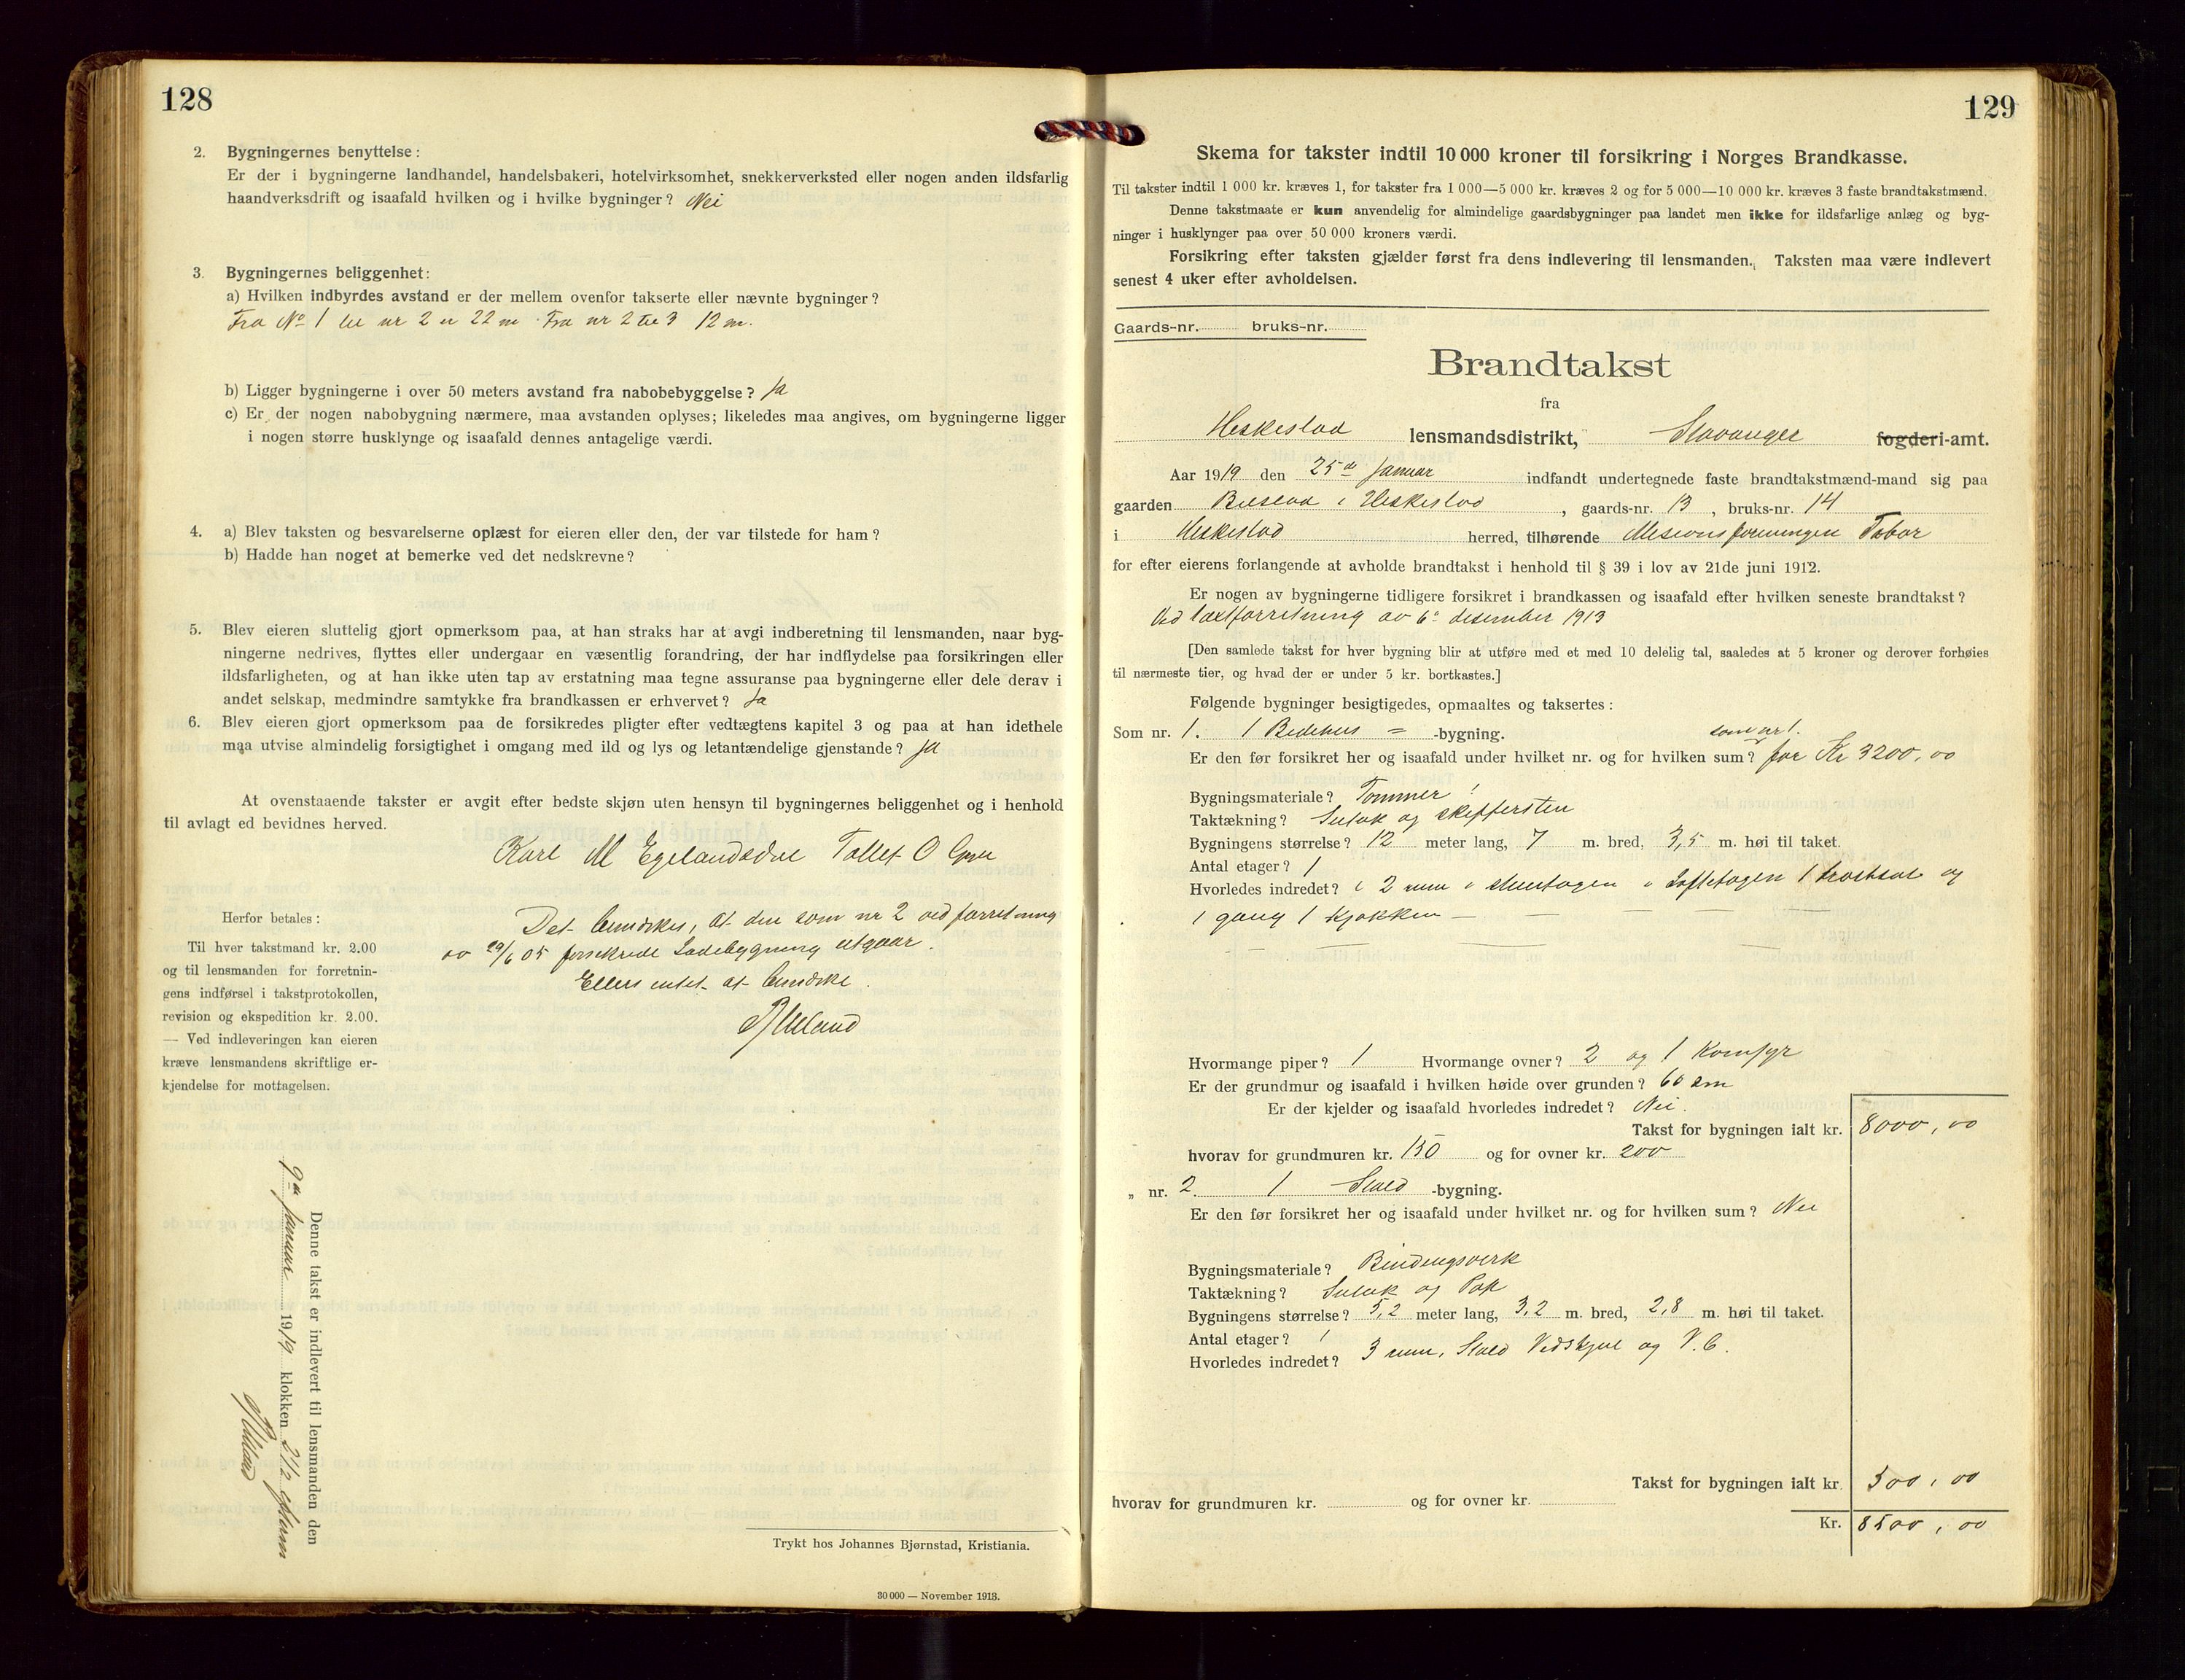 128
2. Bygningernes benyttelse:
Er der i bygningerne landhandel, handelsbakeri, hotelvirksomhet, snekkerverksted eller nogen anden ildsfarlig
haandverksdrift og isaafald hvilken og i hvilke bygninger? Nei
3. Bygningernes beliggenhet:
a) Hvilken indbyrdes avstand er der mellem ovenfor takserte eller nævnte bygninger?
Fra No 1 til nr 2 er 22 m. Fra nr 2 til 3 12 m.
b) Ligger bygningerne i over 50 meters avstand fra nabobebyggelse? Ja
c) Er der nogen nabobygning nærmere, maa avstanden oplyses; likeledes maa angives, om bygningerne ligger
i nogen større husklynge og isaafald dennes antagelige værdi.
4. a) Blev taksten og besvarelserne oplæst for eieren eller den, der var tilstede for ham?
b) Hadde han noget at bemerke ved det nedskrevne?
5. Blev eieren sluttelig gjort opmerksom paa, at han straks har at avgi indberetning til lensmanden, naar byg-
ningerne nedrives, flyttes eller undergaar en væsentlig forandring, der har indflydelse paa forsikringen eller
ildsfarligheten, og at han ikke uten tap av erstatning maa tegne assuranse paa bygningerne eller dele derav i
andet selskap, medmindre samtykke fra brandkassen er erhvervet? Ja
6. Blev eieren gjort opmerksom paa de forsikredes pligter efter vedtægtens kapitel 3 og paa at han idethele
maa utvise almindelig forsigtighet i omgang med ild og lys og letantændelige gjenstande? Ja
At ovenstaaende takster er avgit efter bedste skjøn uten hensyn til bygningernes beliggenhet og i henhold
til avlagt ed bevidnes herved.
Karl M Egelandsdal Tollef O
Det bemerkes, at den som nr 2 ved forretning
av 29/6 05 forsikrede Ladebygning utgaar.
Ellers intet at bemerke.
Herfor betales:
Til hver takstmand kr. 2.00
og til lensmanden for forretnin-
gens indførsel i takstprotokollen,
revision og ekspedition kr. 2.00.
— Ved indleveringen kan eieren
kræve lensmandens skriftlige er-
kjendelse for mottagelsen.
Denne takst er indlevert til lensmanden den
januar 1919 klokken 2 1/2 efterm
Trykt hos Johannes Bjørnstad, Kristiania.
30 000 — November 1913.
129
Skema for takster indtil 10 000 kroner til forsikring i Norges Brandkasse.
Til takster indtil 1 000 kr. kræves 1, for takster fra 1 000—5 000 kr. kræves 2 og for 5 000—10 000 kr. kræves 3 faste brandtakstmænd.
Denne takstmaate er kun anvendelig for almindelige gaardsbygninger paa landet men ikke for ildsfarlige anlæg og byg-
ninger i husklynger paa over 50 000 kroners værdi.
Forsikring efter taksten gjælder først fra dens indlevering til lensmanden. Taksten maa være indlevert
senest 4 uker efter avholdelsen.
Gaards-nr. bruks-nr.
Brandtakst
fra
Heskestad lensmandsdistrikt, Stavanger fogderi-amt.
Aar 1919 den 25de Januar indfandt undertegnede faste brandtakstmænd-mand sig paa
gaarden i Heskestad, gaards-nr. 13, bruks-nr. 14
i Heskestad herred, tilhørende Missionsforeningen Tabor
for efter eierens forlangende at avholde brandtakst i henhold til § 39 i lov av 21de juni 1912.
Er nogen av bygningerne tidligere forsikret i brandkassen og isaafald efter hvilken seneste brandtakst?
Ved taxtforretning av 6te desember 1913
[Den samlede takst for hver bygning blir at utføre med et med 10 delelig tal, saaledes at 5 kroner og derover forhøies
til nærmeste tier, og hvad der er under 5 kr. bortkastes.]
Følgende bygninger besigtigedes, opmaaltes og taksertes:
Som nr. 1. 1 Bedehus = -bygning. som nr 1.
Er den før forsikret her og isaafald under hvilket nr. og for hvilken sum? for Kr 3200,00
Bygningsmateriale? Tømmer
Taktækning? Sutak og skiffersten
Bygningens størrelse? 12 meter lang, 7 m. bred, 3,5 m. høi til taket.
Antal etager? 1
Hvorledes indredet? i 2 rum i 1 og
1 gang 1 Kjøkken —
Hvormange piper? 1 Hvormange ovner? 2 og 1 Komfyr
Er der grundmur og isaafald i hvilken høide over grunden? 60 cm
Er der kjelder og isaafald hvorledes indredet? Nei.
Takst for bygningen ialt kr. 8000,00
hvorav for grundmuren kr. 150 og for ovner kr. 200
„ nr. 2 1 Stald -bygning.
Er den før forsikret her og isaafald under hvilket nr. og for hvilken sum? Nei
Bygningsmateriale? Bindingsverk
Taktækning? Sutak og Pap
Bygningens størrelse? 5,2 meter lang, 3,2 m. bred, 2,8 m. høi til taket.
Antal etager? 1
Hvorledes indredet? 3 rum, Stald Vedskjul og V.C.
Takst for bygningen ialt kr. 500,00
hvorav for grundmuren kr. og for ovner kr.
Kr. 8500,00